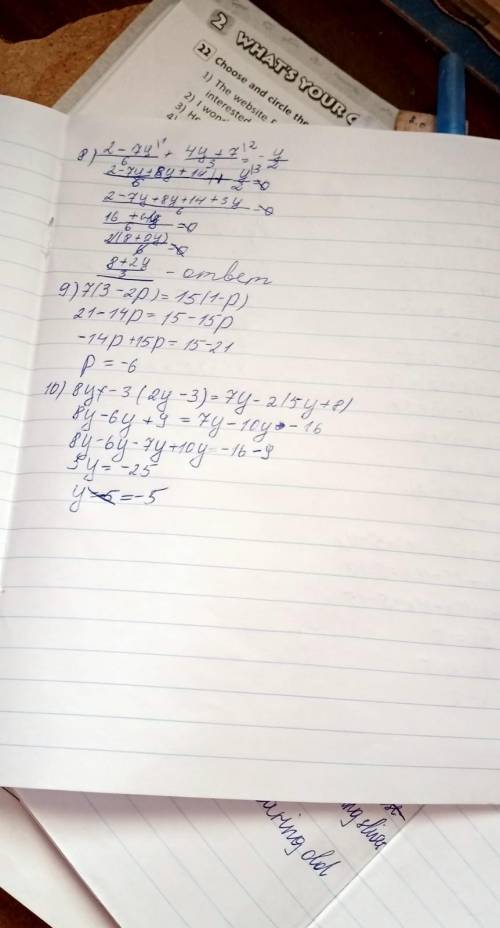 2 WHAT'S YOUR
22 Choose and circle the
1) The website
interested
2) I
3)
8) (2-7y\1)/6 + (4y+7\2)/3 = -y/2
(2-7y+8y+14)/6 + y\3/2 = 0
(2-7y+8y+14+3y)/6 = 0
(16+4y)/6 = 0
2(8+2y)/6 = 0
(8+2y)/3 - ответ
9) 7(3-2p) = 15(1-p)
21-14p = 15-15p
-14p+15p = 15-21
p = -6
10) 8y-3(2y-3) = 7y-2(5y+8)
8y-6y+9 = 7y-10y-16
8y-6y-7y+10y = -16-9
5y = -25
y = -5
ring old